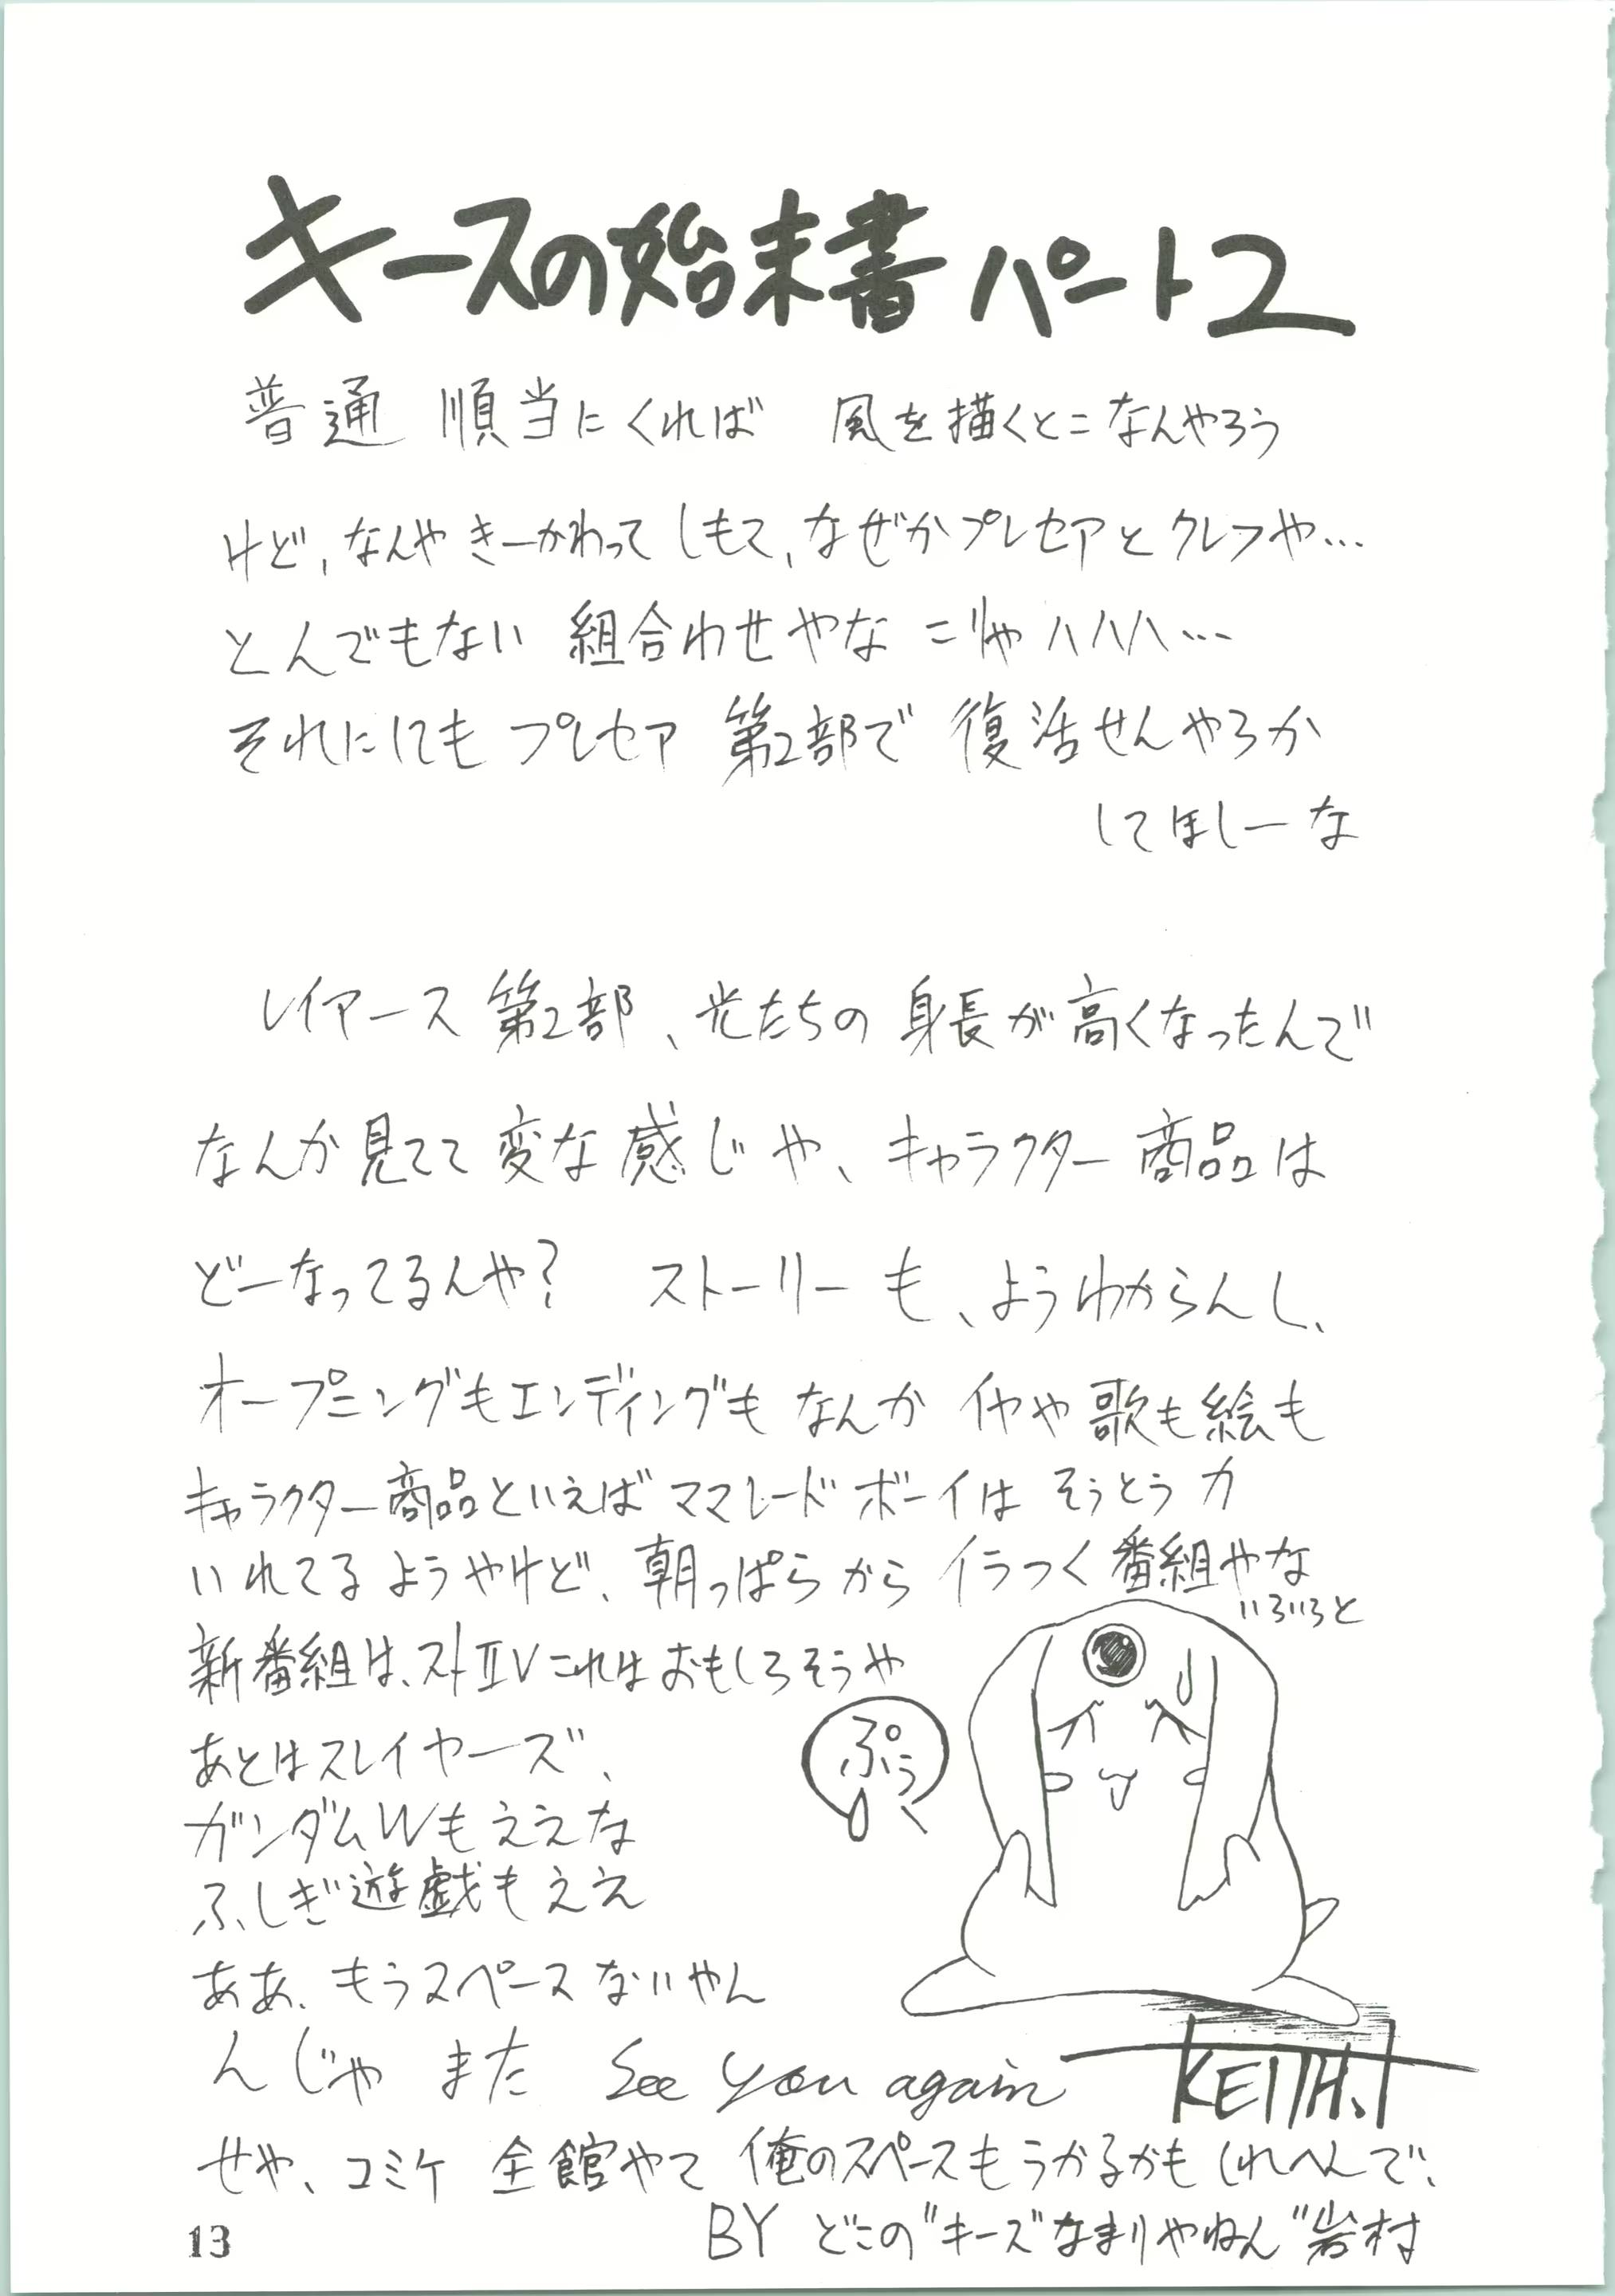 キースの始末書 パート2
普通 順当にくれば 風を描くとこなんやろう
けど、なんや きーかわって しもて、なぜかプレセアとクレフや…
とんでもない 組合わせやな こりゃ ハハハ…
それにしても プレセア 第2部で 復活せんやろか
してほしーな
レイアース 第2部、光たちの 身長が高くなったんで
なんか見てて 変な感じや、キャラクター商品は
どーなってるんや? ストーリーも、ようわからんし、
オープニングもエンディングも なんか イヤや 歌も絵も
キャラクター商品といえば ママレードボーイは そうとう力
いれてるようやけど、朝っぱらから イラつく番組やな
いろいろと
新番組は、ストⅡV これは おもしろそうや
あとはスレイヤーズ、
ガンダムWもええな
ふしぎ遊戯もええ
ぷぅ
ああ、もうスペースないやん
んじゃ また See you again
KEITH.I
せや、コミケ 全館やて 俺のスペースもうかるかもしれへんで、
BY どこの"キーズ"なまりやねん"岩村
13